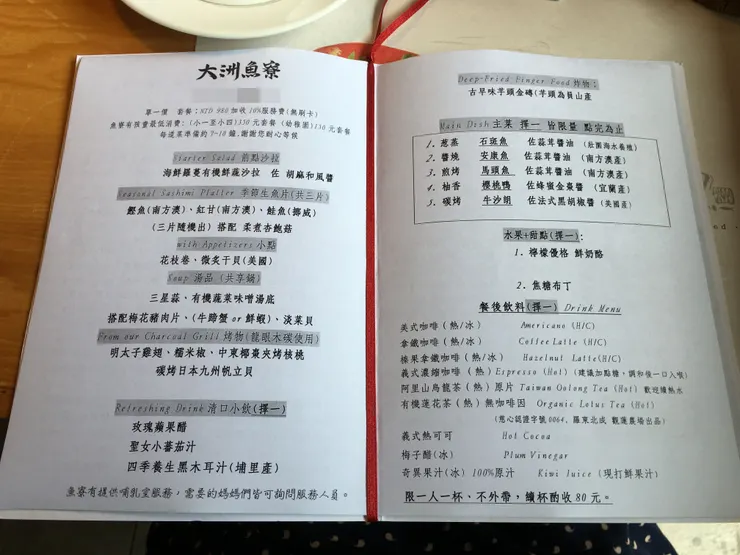 大洲魚寮
單一價 套餐:NTD 980 加收10%服務費(無刷卡)
魚寮有孩童最低消費:(小一至小四)330元套餐 (幼稚園)130元套餐
每道菜準備約7-10鐘,謝謝您耐心等候
Starter Salad 前點沙拉
海鮮羅蔓有機鮮蔬沙拉 佐 胡麻和風醬
Seasonal Sashimi Platter 季節生魚片(共三片)
鰹魚(南方澳)、紅甘(南方澳)、鮭魚(挪威)
(三片隨機出) 搭配 柔煮杏鮑菇
with Appetizers 小點
花枝卷、微炙干貝(美國)
Soup 湯品 (共享鍋)
三星蒜、有機蔬菜味噌湯底
搭配梅花豬肉片、(牛蹄蟹 or 鮮蝦)、淡菜貝
From our Charcoal Grill 烤物(龍眼木碳使用)
明太子雞翅、糯米椒、中東椰棗夾烤核桃
碳烤日本九州帆立貝
Refreshing Drink 清口小飲(擇一)
玫瑰蘋果醋
聖女小蕃茄汁
四季養生黑木耳汁(埔里產)
魚寮有提供哺乳室服務,需要的媽媽們皆可詢問服務人員。
Deep-Fried Finger Food 炸物:
古早味芋頭金磚(芋頭為員山產
Main Dish 主菜 擇一 皆限量 點完為止
1. 蔥蒸 石斑魚 佐蒜茸醬油 (莊園海水養殖)
2. 醬燒 安康魚 佐蒜茸醬油 (南方澳產)
3. 煎烤 馬頭魚 佐蒜茸醬油 (南方澳產)
4. 柚香 櫻桃鴨 佐蜂蜜金棗醬 (宜蘭產)
5. 碳烤 牛沙朗 佐法式黑胡椒醬 (美國產)
水果+甜點(擇一):
1. 檸檬優格 鮮奶酪
2. 焦糖布丁
餐後飲料(擇一) Drink Menu
美式咖啡(熱/冰) Americano (H/C)
拿鐵咖啡(熱/冰) Coffee Latte (H/C)
榛果拿鐵咖啡(熱/冰) Hazelnut Latte(H/C)
義式濃縮咖啡(熱) Espresso (Hot) (建議加點糖,調和後一口入喉)
阿里山烏龍茶(熱)原片 Taiwan Oolong Tea (Hot) 歡迎續熱水
有機蓮花茶(熱)無咖啡因 Organic Lotus Tea (Hot)
(慈心認證字號0064, 羅東北成 觀蓮農場出品)
義式熱可可 Hot Cocoa
梅子醋(冰) Plum Vinegar
奇異果汁(冰) 100%原汁 Kiwi Juice (現打鮮果汁)
限一人一杯、不外帶,續杯酌收80元。